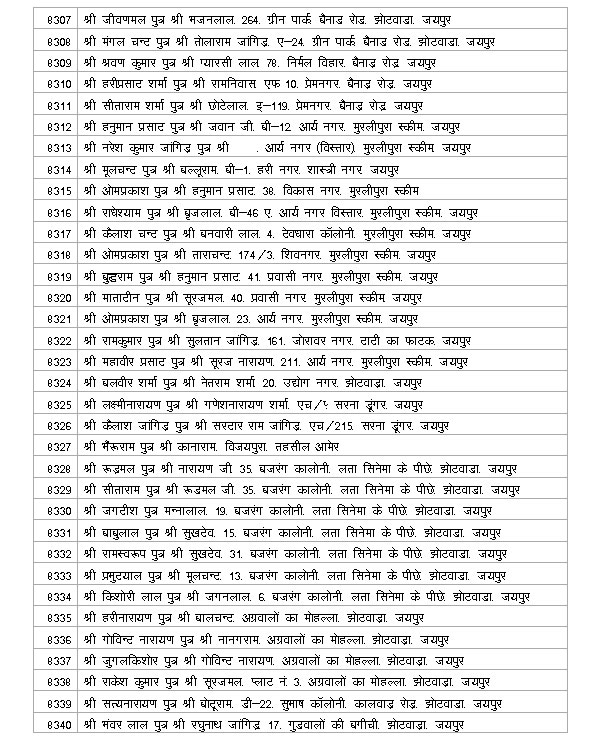 8307 श्री जीवणमल पुत्र श्री भजनलाल. 264. ग्रीन पार्क. बैनाड रोड. झोटवाडा. जयपुर
8308 श्री मंगल चन्द पुत्र श्री तोलाराम जांगिड़. ए–24. ग्रीन पार्क. बैनाड रोड. झोटवाडा. जयपुर
8309 श्री श्रवण कुमार पुत्र श्री ग्यारसी लाल. 78. निर्मल विहार. बैनाड़ रोड़. जयपुर
8310 श्री हरीप्रसाद शर्मा पुत्र श्री रामनिवास. एफ 10. प्रेमनगर. बैनाड रोड़. जयपुर
8311 श्री सीताराम शर्मा पुत्र श्री छोटेलाल. इ–119. प्रेमनगर. बैनाड़ रोड़. जयपुर
8312 श्री हनुमान प्रसाद पुत्र श्री जवान जी. बी–12. आर्य नगर. मुरलीपुरा स्कीम. जयपुर
8313 श्री नरेश कुमार जांगिड़ पुत्र श्री . आर्य नगर (विस्तार). मुरलीपुरा स्कीम. जयपुर
8314 श्री मूलचन्द पुत्र श्री बल्लूराम. बी–1. हरी नगर. शास्त्री नगर. जयपुर
8315 श्री ओमप्रकाश पुत्र श्री हनुमान प्रसाद. 38. विकास नगर. मुरलीपुरा स्कीम
8316 श्री राधेश्याम पुत्र श्री बृजलाल. बी–46 ए. आर्य नगर विस्तार. मुरलीपुरा स्कीम. जयपुर
8317 श्री कैलाश चन्द पुत्र श्री बनवारी लाल. 4. देवधारा कॉलोनी. मुरलीपुरा स्कीम. जयपुर
8318 श्री ओमप्रकाश पुत्र श्री ताराचन्द. 174/3. शिवनगर. मुरलीपुरा स्कीम. जयपुर
8319 श्री बुद्धराम पुत्र श्री हनुमान प्रसाद. 41. प्रवासी नगर. मुरलीपुरा स्कीम. जयपुर
8320 श्री मातादीन पुत्र श्री सूरजमल. 40. प्रवासी नगर. मुरलीपुरा स्कीम. जयपुर
8321 श्री ओमप्रकाश पुत्र श्री बृजलाल. 23. आर्य नगर. मुरलीपुरा स्कीम. जयपुर
8322 श्री रामकुमार पुत्र श्री सुलतान जांगिड़. 161. जोरावर नगर. दादी का फाटक. जयपुर
8323 श्री महावीर प्रसाद पुत्र श्री सूरज नारायण. 211. आर्य नगर. मुरलीपुरा स्कीम. जयपुर
8324 श्री बलवीर शर्मा पुत्र श्री नेतराम शर्मा. 20. उद्योग नगर. झोटवाड़ा. जयपुर
8325 श्री लक्ष्मीनारायण पुत्र श्री गणेशनारायण शर्मा. एच/ सरना डूंगर. जयपुर
8326 श्री कैलाश जांगिड़ पुत्र श्री सरदार राम जांगिड़. एच/215. सरना डूंगर. जयपुर
8327 श्री भैंरूराम पुत्र श्री कानाराम. विजयपुरा. तहसील आमेर
8328 श्री रूड़मल पुत्र श्री नारायण जी. 35. बजरंग कालोनी. लता सिनेमा के पीछे. झोटवाडा. जयपुर
8329 श्री सीताराम पुत्र श्री रूडमल जी. 35. बजरंग कालोनी. लता सिनेमा के पीछे. झोटवाड़ा. जयपुर
8330 श्री जगदीश पुत्र मन्नालाल. 19. बजरंग कालोनी. लता सिनेमा के पीछे. झोटवाड़ा. जयपुर
8331 श्री बाबुलाल पुत्र श्री सुखदेव. 15. बजरंग कालोनी. लता सिनेमा के पीछे. झोटवाड़ा. जयपुर
8332 श्री रामस्वरूप पुत्र श्री सुखदेव. 31. बजरंग कालोनी. लता सिनेमा के पीछे. झोटवाड़ा. जयपुर
8333 श्री प्रभुदयाल पुत्र श्री मूलचन्द. 13. बजरंग कालोनी. लता सिनेमा के पीछे. झोटवाड़ा. जयपुर
8334 श्री किशोरी लाल पुत्र श्री जगनलाल. 6. बजरंग कालोनी. लता सिनेमा के पीछे. झोटवाड़ा. जयपुर
8335 श्री हरीनारायण पुत्र श्री बालचन्द. अग्रवालों का मोहल्ला. झोटवाड़ा. जयपुर
8336 श्री गोविन्द नारायण पुत्र श्री नानगराम. अग्रवालों का मोहल्ला. झोटवाड़ा. जयपुर
8337 श्री जुगलकिशोर पुत्र श्री गोविन्द नारायण. अग्रवालों का मोहल्ला. झोटवाड़ा. जयपुर
8338 श्री राकेश कुमार पुत्र श्री सूरजमल. प्लाट नं. 3. अग्रवालों का मोहल्ला. झोटवाड़ा. जयपुर
8339 श्री सत्यनारायण पुत्र श्री छोटूराम. डी–22. सुभाष कॉलोनी. कालवाड़ रोड. झोटवाड़ा. जयपुर
8340 श्री भंवर लाल पुत्र श्री रघुनाथ जांगिड़. 17. गुडवालों की बगीची. झोटवाड़ा. जयपुर